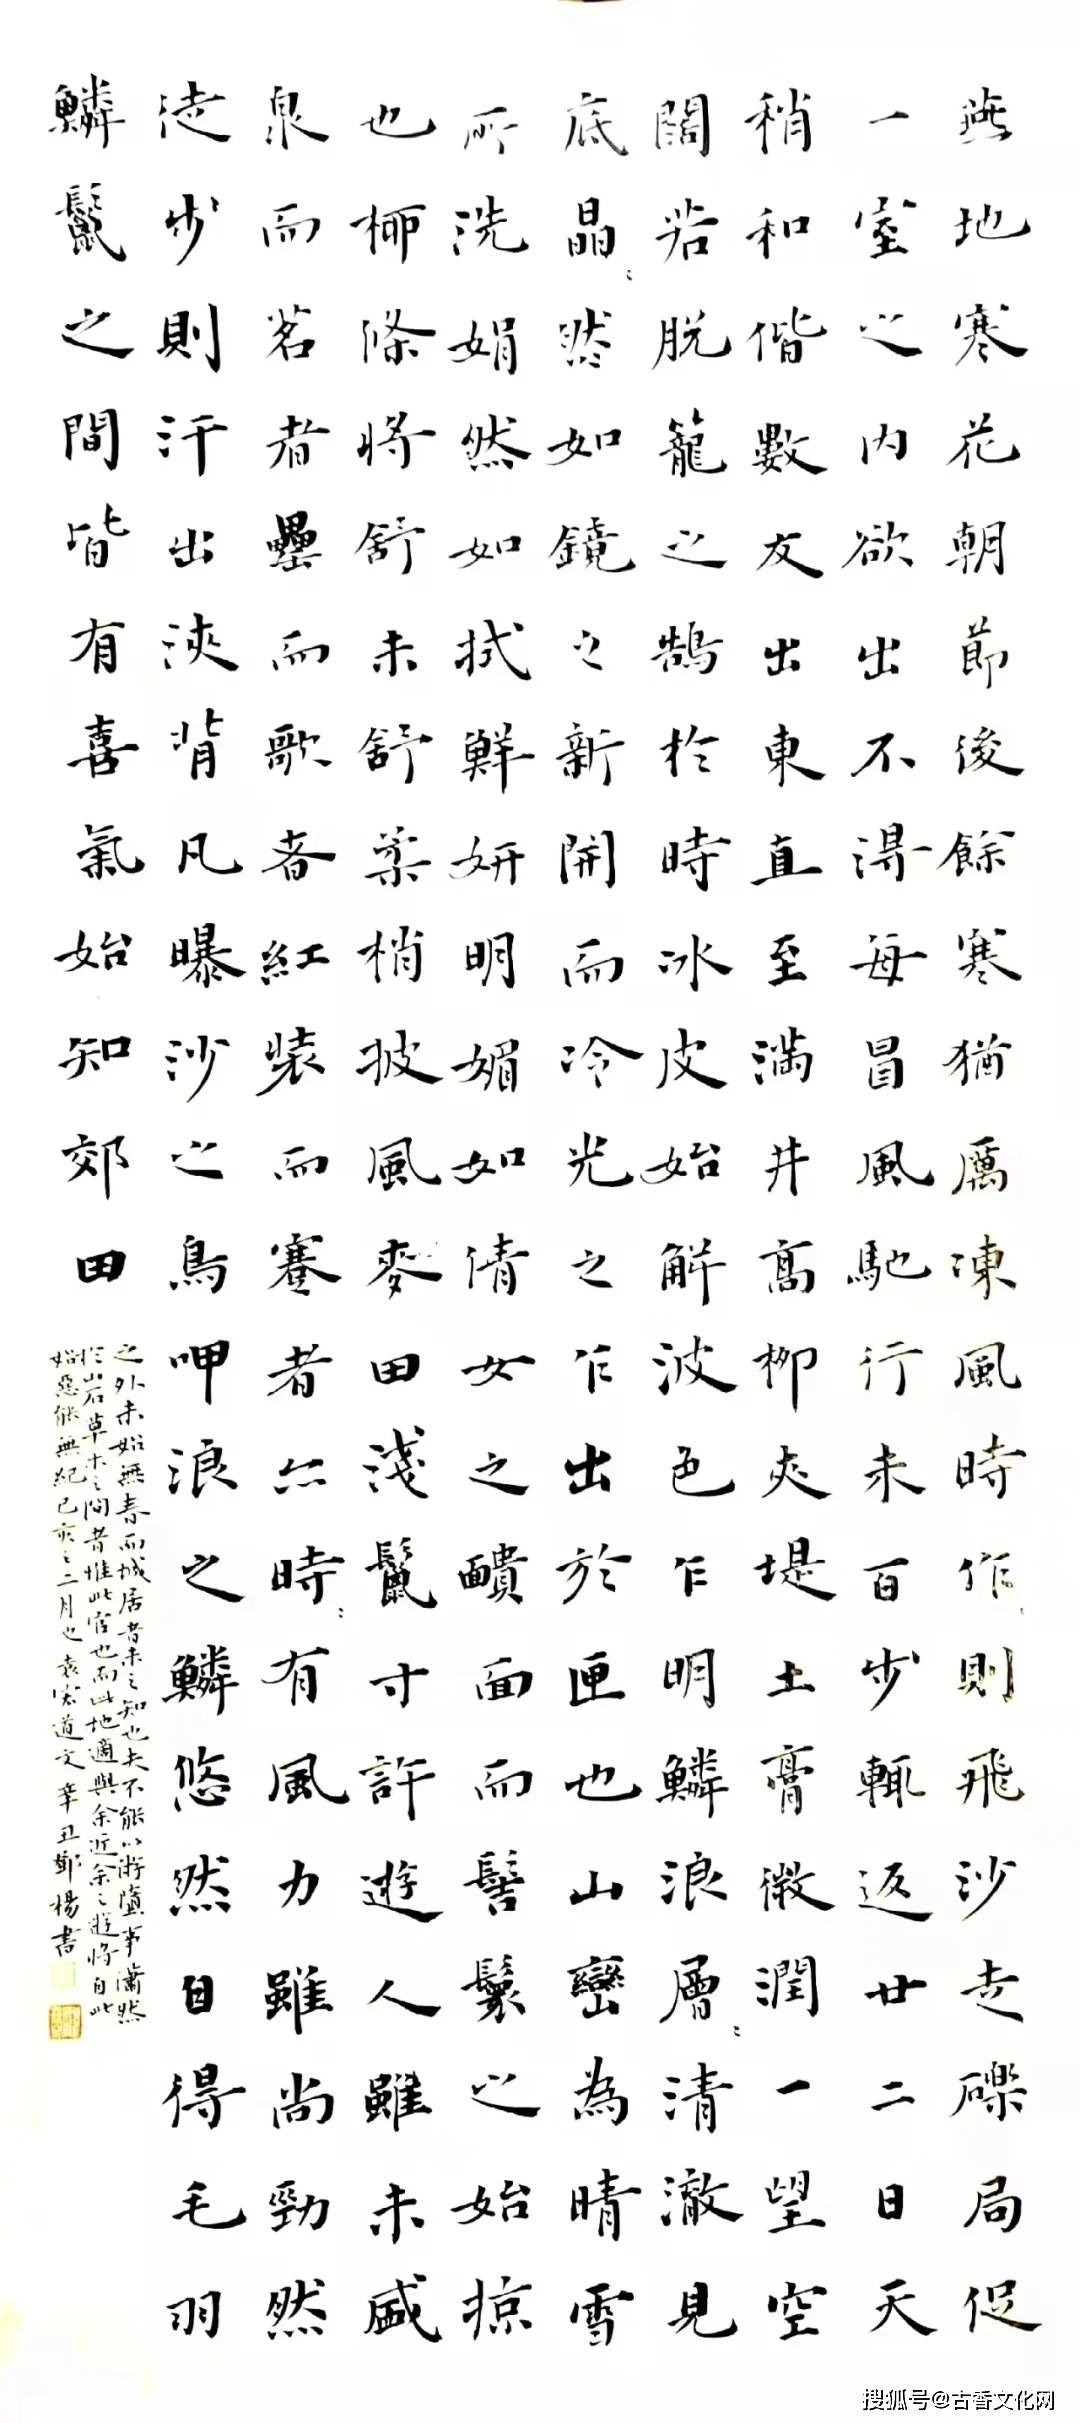 燕地寒花朝節後餘寒猶厲凍風時作〻則飛沙走礫局促
一室之内欲出不得每冒風馳行未百步輒返廿二日天
稍和偕數友出東直至滿井高柳夾堤土膏微潤一望空
闊若脱籠之鵠於時冰皮始解波色乍明鱗浪層〻清澈見
底晶〻然如鏡之新開而冷光之乍出於匣也山巒為晴雪
所洗娟然如拭鮮妍明媚如倩女之靧面而髻鬟之始掠
也柳條將舒未舒柔梢披風麥田淺鬣寸許遊人雖未盛
泉而茗者罍而歌者紅裝而蹇者亦時〻有風力雖尚勁然
徒步則汗出浹背凡曝沙之鳥呷浪之鱗悠然自得毛羽
鱗鬣之間皆有喜氣始知郊田
之外未始無春而城居者未之知也夫不能以游墮事瀟然
於山石草木之間者惟此官也而此地適與余近余之遊將自此
始惡能無紀己亥之二月也袁宏道文辛丑鄭楊書
搜狐号@古香文化网